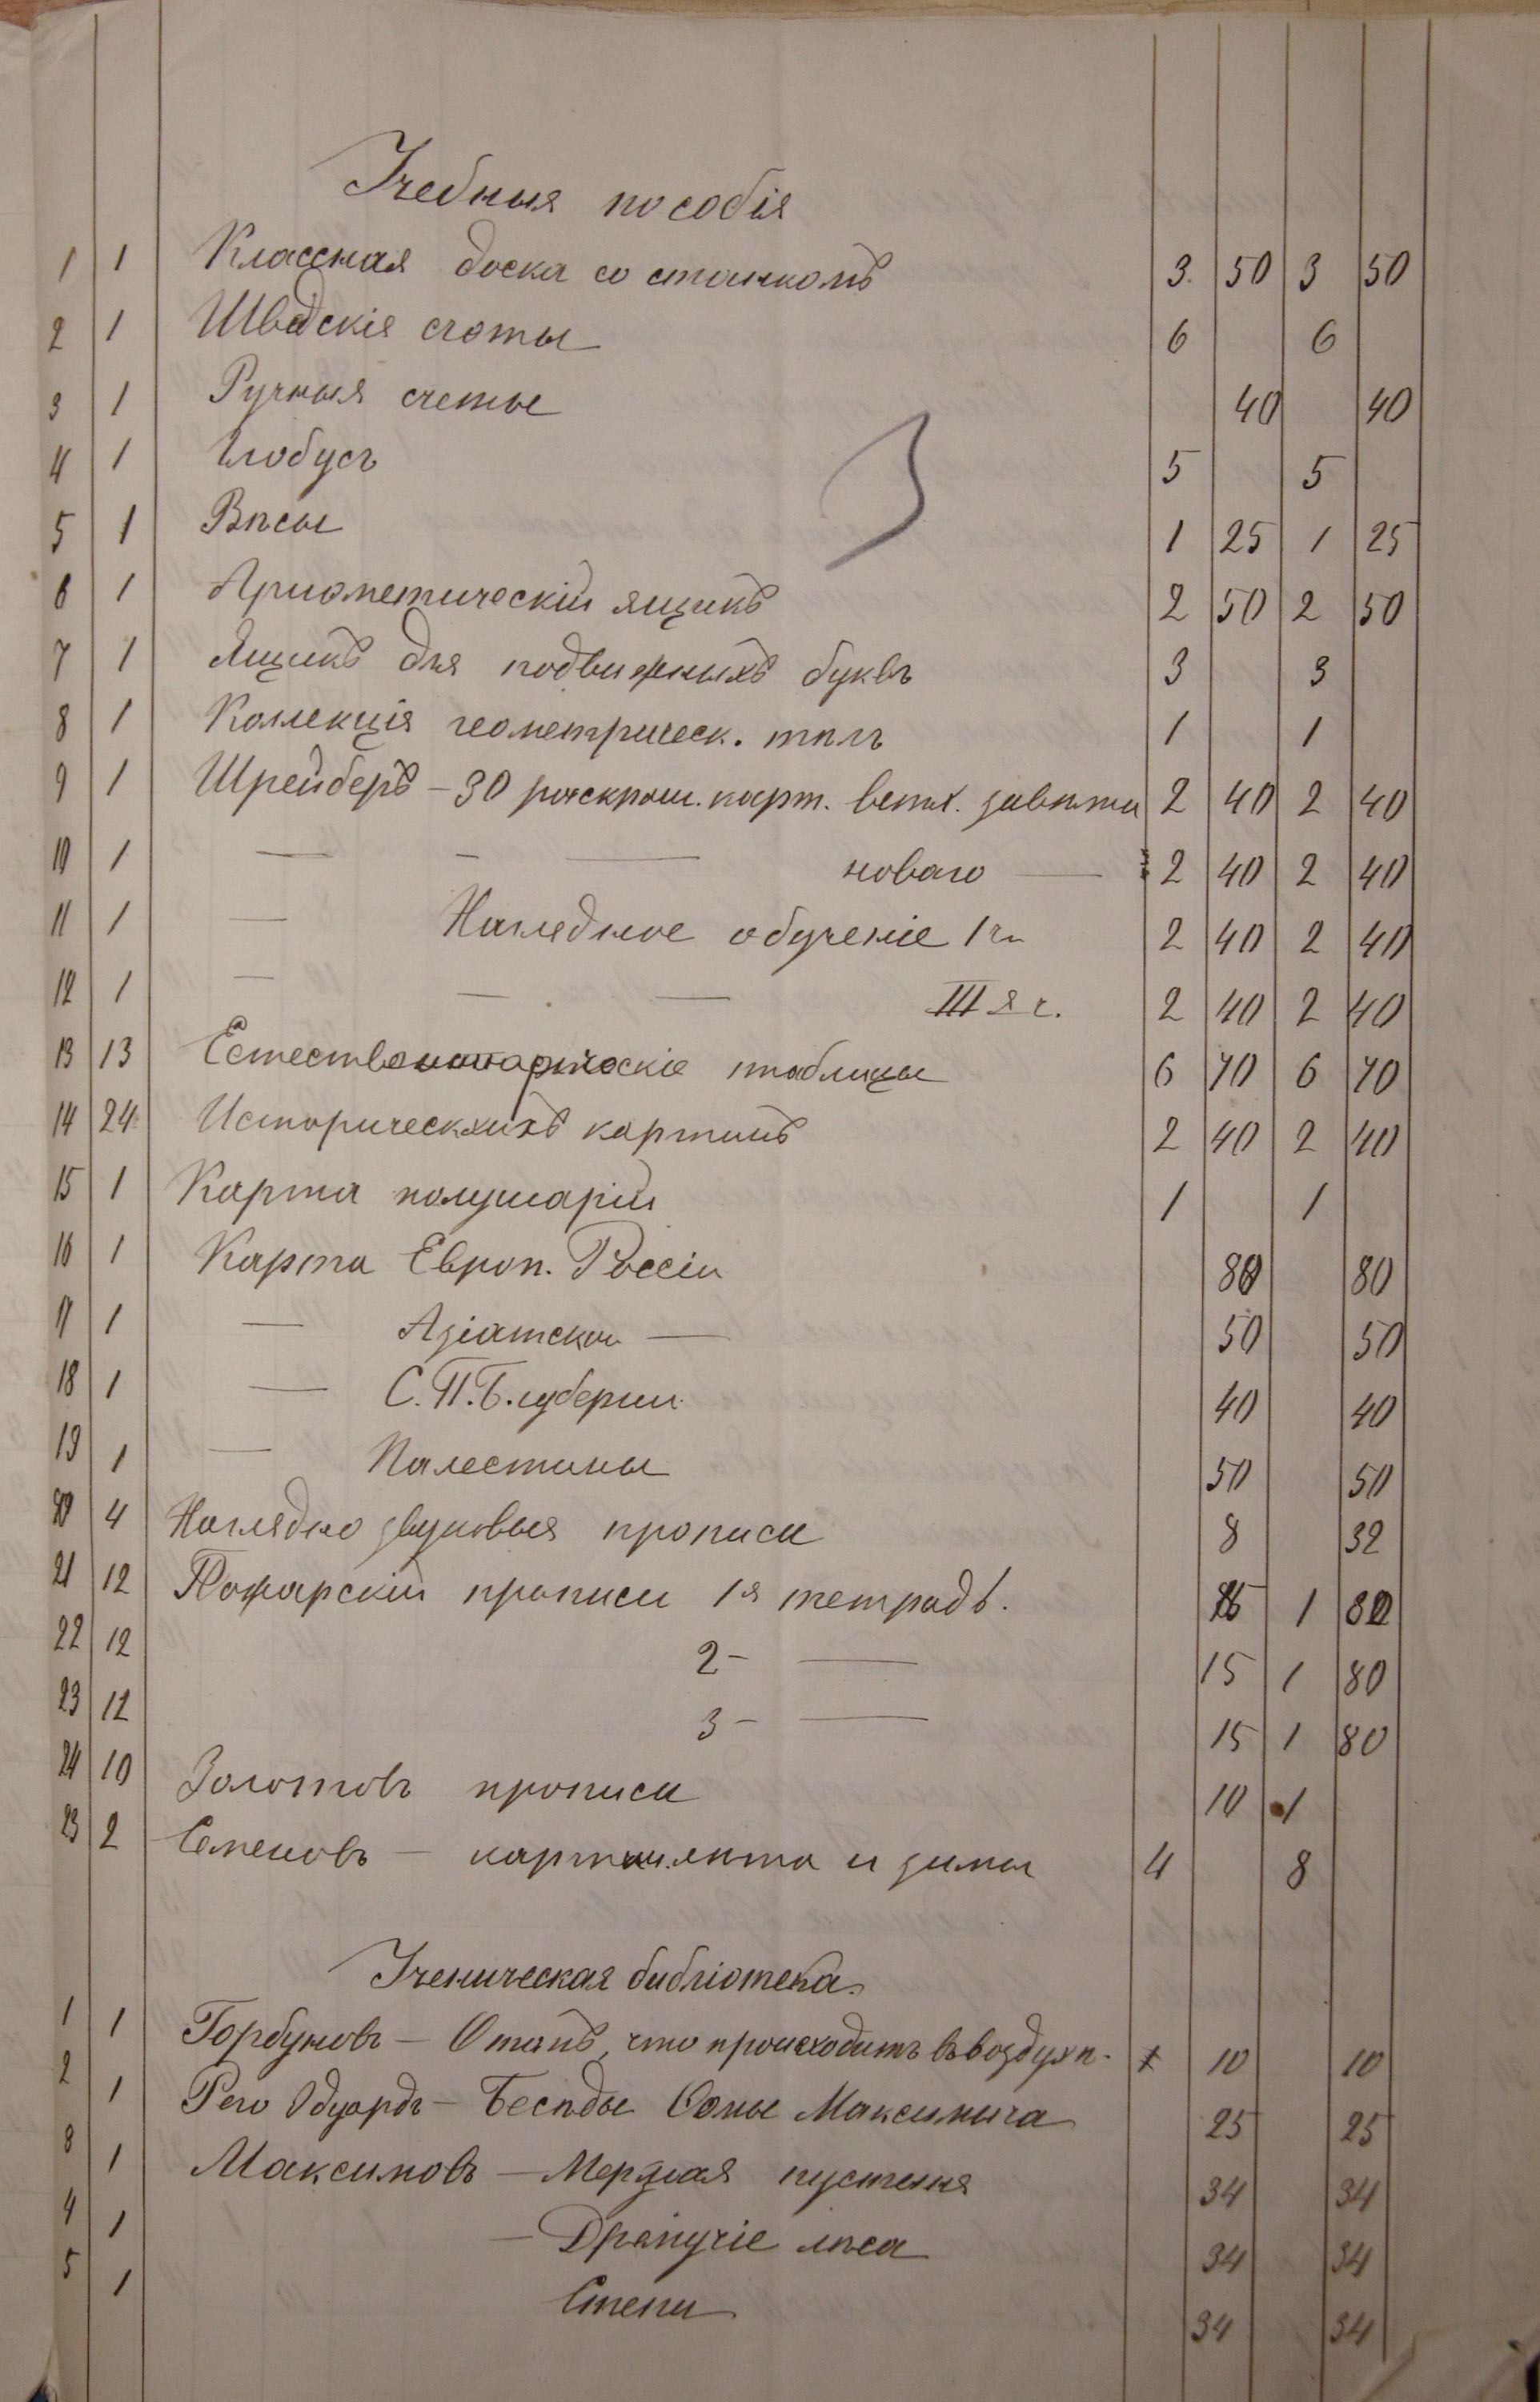 Учебныя пособія
1 1 Классная доска со станкомъ 3 50 3 50
2 1 Шведскія счоты 6 6
3 1 Ручныя счеты 40 40
4 1 Глобусъ 5 5
5 1 Вѣсы 1 25 1 25
6 1 Ариѳметическій ящикъ 2 50 2 50
7 1 Ящикъ для подвижныхъ буквъ 3 3
8 1 Коллекція геометрическ. тѣлъ 1 1
9 1 Шрейберъ – 30 раскраш. карт. ветх. завѣта 2 40 2 40
10 1 — – — новаго — 2 40 2 40
11 1 — Наглядное обученіе 1 ч. 2 40 2 40
12 1 — — — III я ч. 2 40 2 40
13 13 таблицы 6 70 6 70
14 24 Историческихъ картинъ 2 40 2 40
15 1 Карта полушарій 1 1
16 1 Карта Европ. Россіи 80 80
17 1 — Азіатской — 50 50
18 1 — С.П.Б. губерніи 40 40
19 1 — Палестины 50 50
20 4 Наглядно звуковыя прописи 8 32
21 12 Пожарскій прописи 1я тетрадь. 15 1 80
22 12 2 – — 15 1 80
23 12 3 – — 15 1 80
24 10 Золотовъ прописи 10 1
23 2 Семеновъ – карт. лѣта и зимы 4 8
Ученическая библіотека.
1 1 Горбуновъ – О томъ, что происходитъ въ воздухѣ. 10 10
2 1 Рего Эдуардъ – Бесѣды Ѳомы Максимыча 25 25
3 1 Максимовъ – Мерзлая пустыня 34 34
4 1 – Дремучіе лѣса 34 34
5 1 Степи 34 34